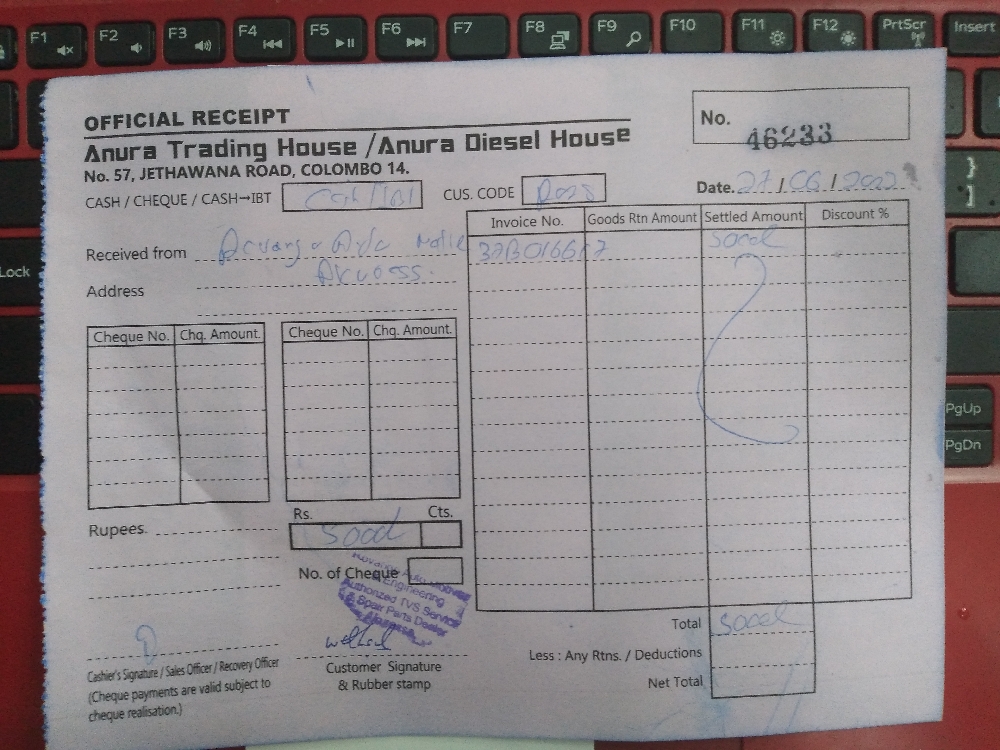 F1 F2 F3 F4 F5 F6 F7 F8 F9 F10 F11 F12 PrtScr Insert
OFFICIAL RECEIPT
Anura Trading House /Anura Diesel House
No. 57, JETHAWANA ROAD, COLOMBO 14.
No. 46233
CASH / CHEQUE / CASH→IBT
CUS. CODE
Date. 27 / 06 / 2022
Received from
Address
Invoice No. Goods Rtn Amount Settled Amount Discount %
Cheque No. Chq. Amount. Cheque No. Chq. Amount.
Rupees.
Rs. Cts.
No. of Cheque
Engineering
Authorized TVS Service
& Spair Parts Dealer
Cashier's Signature / Sales Officer / Recovery Officer
(Cheque payments are valid subject to
cheque realisation.)
Customer Signature
& Rubber stamp
Total
Less : Any Rtns. / Deductions
Net Total
}
]
Lock
PgUp
PgDn